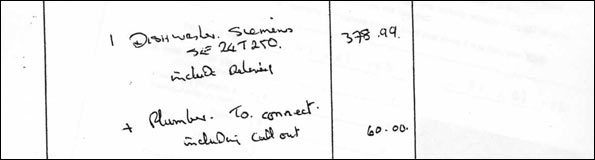 1 Dishwasher. Siemens 378.99.
SE 24T250.
include Delivery
+ Plumber. To. connect.
including call out 60.00.